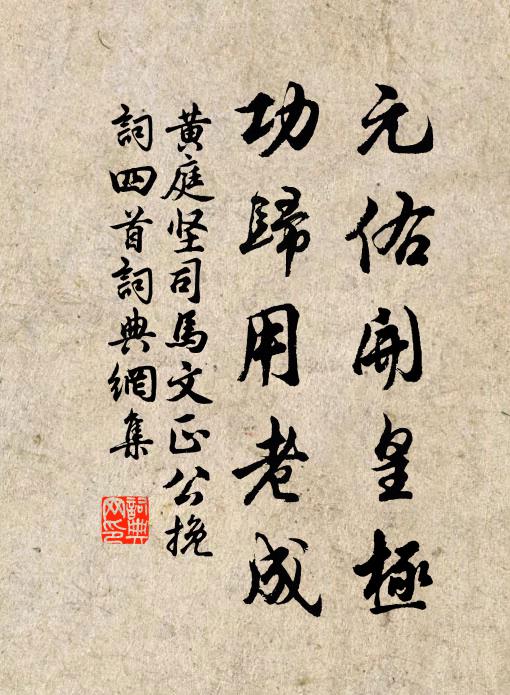 元佑開皇極
功歸用老成
黃庭坚司馬文正公挽
詞四首詞典網集
詞典
网印